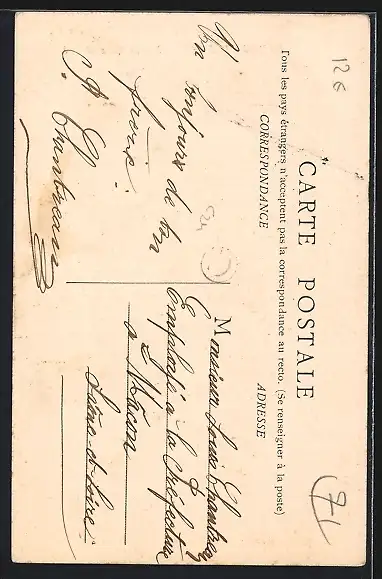 126
CARTE POSTALE
Tous les pays étrangers n'acceptent pas la correspondance au recto. (Se renseigner à la poste)
CORRESPONDANCE
ADRESSE
Un bonjours de ton
frère.
A. Chambreau
Monsieur Louis Chambreau
Employé à la Préfecture
à Mâcon
Saône-et-Loire
71